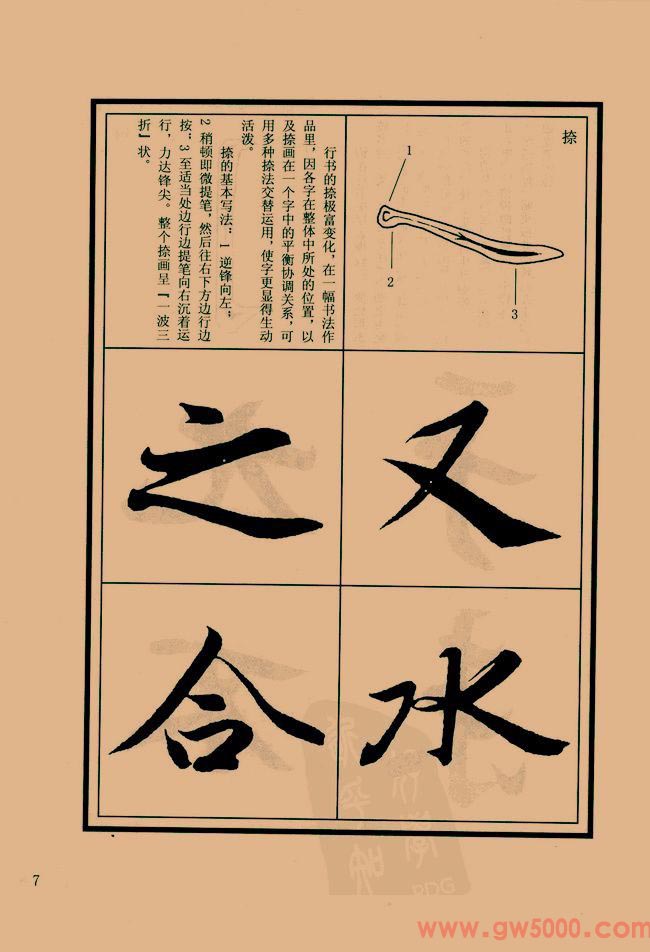 捺
1
2
3
行书的捺极富变化，在一幅书法作
品里，因各字在整体中所处的位置，以
及捺画在一个字中的平衡协调关系，可
用多种捺法交替运用，使字更显得生动
活泼。
捺的基本写法：1 逆锋向左；
2 稍顿即微提笔，然后往右下方边行边
按；3 至适当处边行边提笔向右沉着运
行，力达锋尖。整个捺画呈『一波三
折』状。
又
之
水
合
PDG
7
www.gw5000.com